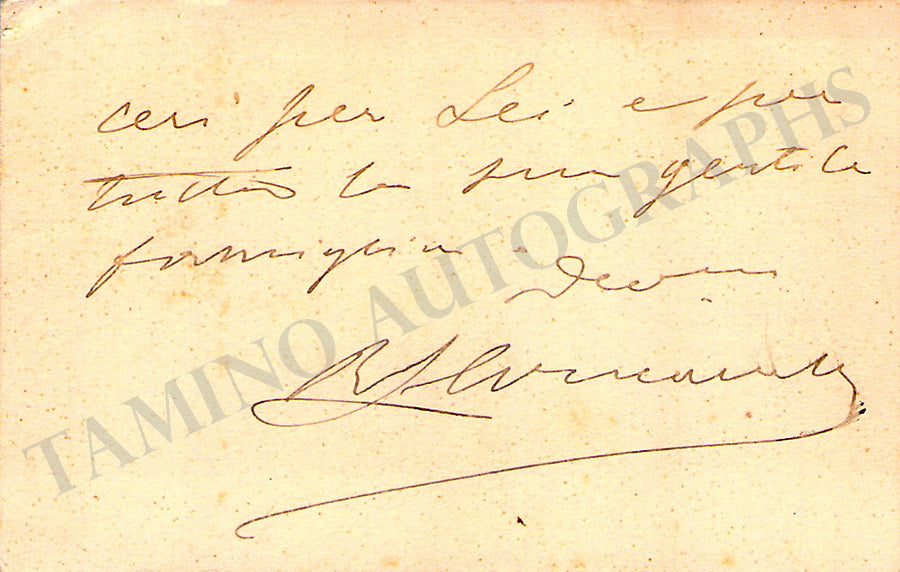 ceri per Lei e per
tutta la sua gentile
famiglia.
Devmo
TAMINO AUTOGRAPHS